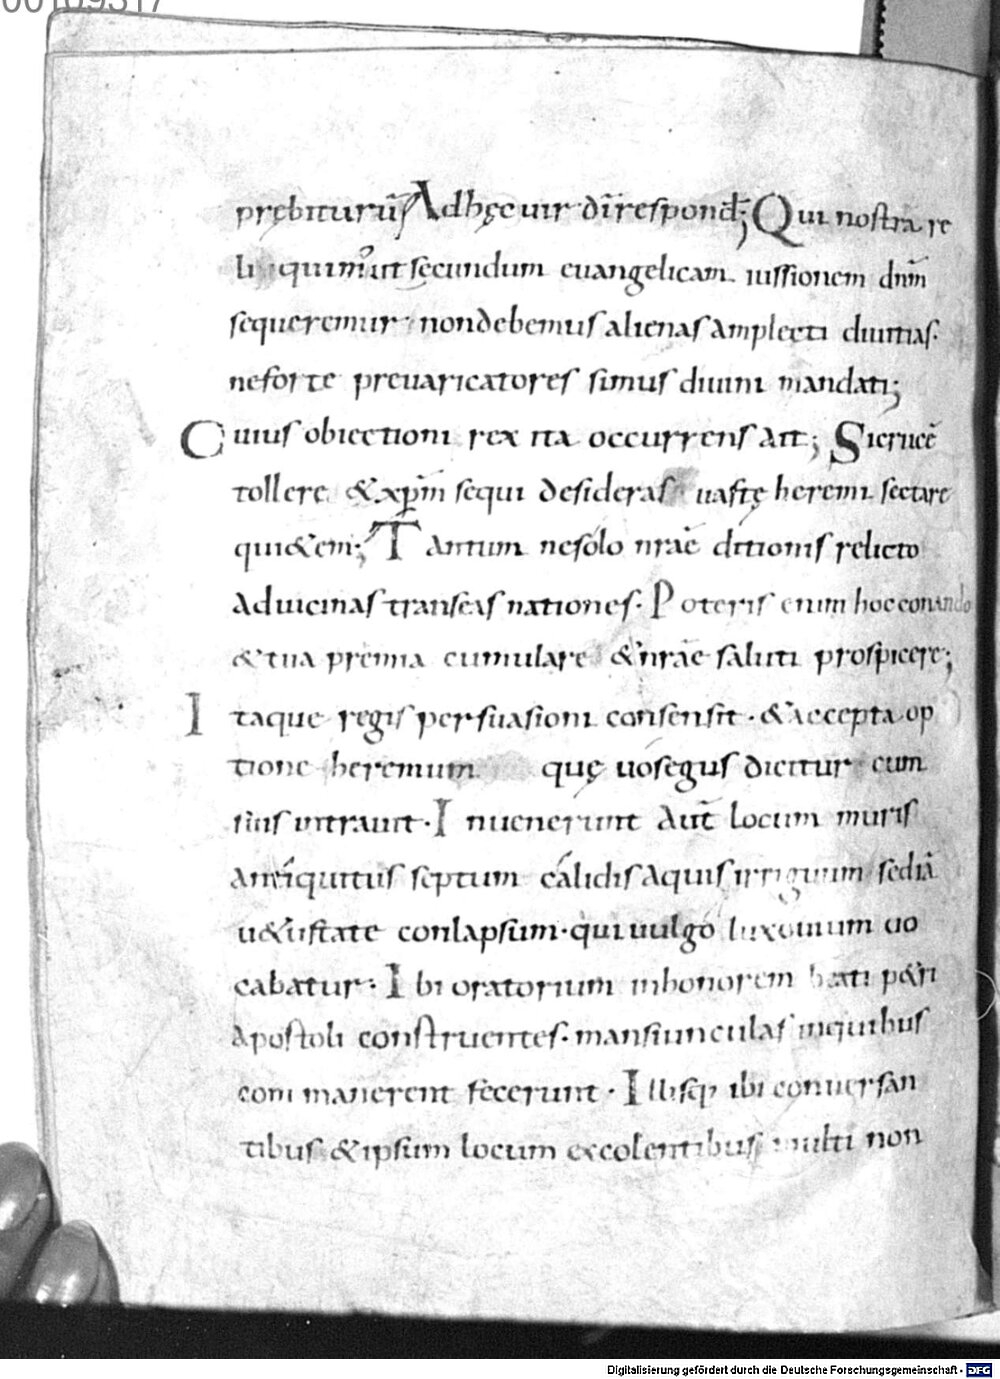 00109317
prębiturū; Ad hęc uir dī respond̄; Qui nostra re
liquimus ut secundum euangelicam iussionem dnm̄
sequeremur · non debemus alienas amplecti diuitias·
ne forte preuaricatores simus diuini mandati;
Cuius obiectioni rex ita occurrens ait; Si crucē
tollere & xp̄m sequi desideras uastę heremi sectare
qui&em; Tantum ne solo nrāe ditionis relicto
ad uicinas transeas nationes· Poteris enim hoc conando
& tua premia cumulare & nrāe saluti prospicere;
Itaque regis persuasioni consensit · & accepta op
tione heremum quę uosegus dicitur cum
suis intrauit · Inuenerunt aut̄ locum muris
antiquitus septum calidis aquis irriguum sed iā
u&ustate conlapsum · qui uulgo luxouium uo
cabatur · Ibi oratorium in honorem beati p&ri
apostoli construentes · mansiunculas in quibus
conmanerent fecerunt · Illisq; ibi conuersan
tibus & ipsum locum excolentibus multi non
Digitalisierung gefördert durch die Deutsche Forschungsgemeinschaft - DFG